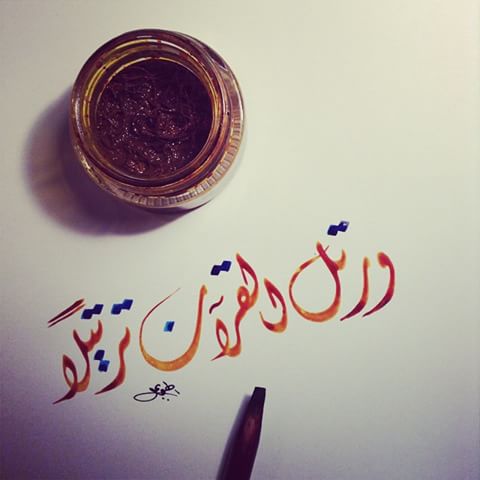 ورتل القرآن ترتيلاً